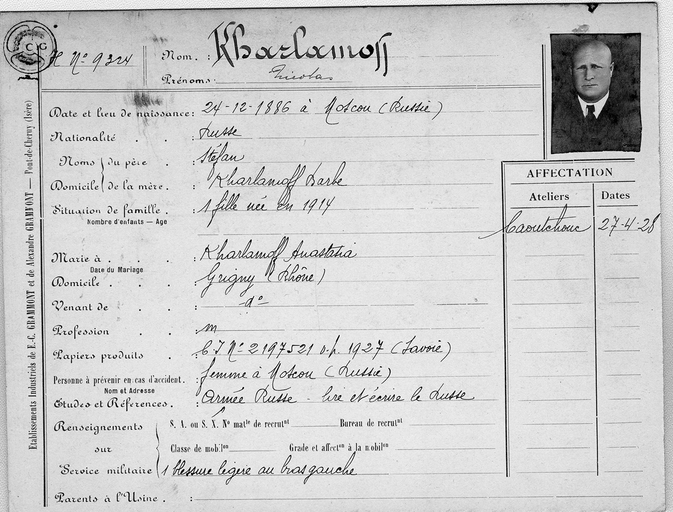 C G
N° 9324
Nom. : Kharlamoff
Prénoms: Nicolas
Date et lieu de naissance: 24-12-1886 à Moscou (Russie)
Nationalité . . : Russe
Noms du père . : Stéfan
Domicile de la mère. : Kharlamoff Barbe
Situation de famille . : 1 fille née en 1914
Nombre d'enfants — Age
Marié à . . . : Kharlamoff Anastasia
Date du Mariage
Domicile . . . : Grigny (Rhône)
Venant de . . : d°
Profession . . : m
Papiers produits . : C I N° 2197521 v.p. 1927 (Savoie)
Personne à prévenir en cas d'accident. : femme à Moscou (Russie)
Nom et Adresse
Etudes et Références. : Armée Russe - lire et écrire le Russe
Renseignements sur Service militaire
S. A. ou S. X. N° matle de recrutnt Bureau de recrutnt
Classe de mobilon Grade et affecton à la mobilon
1 blessure légère au bras gauche
Parents à l'Usine. :
AFFECTATION
Ateliers Dates
Caoutchouc 27-4-28
Etablissements Industriels de E.-C. GRAMMONT et de Alexandre GRAMMONT — Pont-de-Cheruy (Isère)